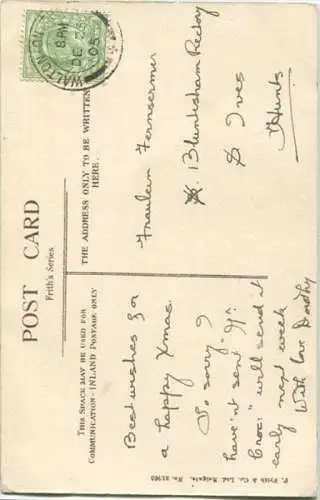 POST CARD
Frith's Series
THIS SPACE MAY BE USED FOR
COMMUNICATION—INLAND POSTAGE ONLY
THE ADDRESS ONLY TO BE WRITTEN
HERE.
WALTON-ON-
8 PM
DE 23
05
Best wishes for
a happy Xmas.
So sorry I
have'nt sent
Croc: will send it
early next week
With love Dorothy
Fraulein
Bluntisham Rectory
St Ives
Hunts
F. Frith & Co. Ltd. Reigate. No.